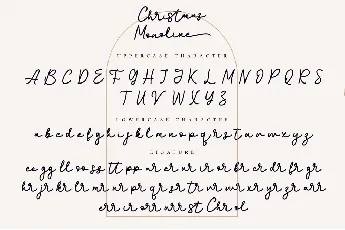 Christmas
Monoline
UPPERCASE CHARACTER
A B C D E F G H I J K L M N O P Q R S
T U V W X Y Z
LOWERCASE CHARACTER
a b c d e f g h i j k l m n o p q r s t u v w x y z
LIGATURE
ee gg ll oo ss tt pp ar er ur ir or br cr dr fr gr
hr jr kr lr mr nr pr qr sr tr vr wr xr yr zr arr
err ir orr urr st Ch rol